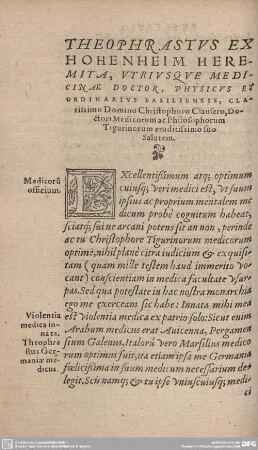 THEOPHRASTVS EX
HOHENHEIM HERE-
MITA, VTRIVSQVE MEDI-
CINAE DOCTOR, PHYSICVS ET
ORDINARIVS BASILIENSIS, CLA-
rissimo Domino Christophoro Clausero, Do-
ctori Medicorum ac Philosophorum
Tigurinorum eruditissimo suo
Salutem.
Medicorū
officium.
EXcellentissimum atq; optimum
cuiusq; veri medici est, vt suum
ipsius ac proprium mentalem me
dicum probe cognitum habeat,
sciatq; sui ne arcani potens sit an non, perinde
ac tu Christophore Tigurinorum medicorum
optime, nihil planè citra iudicium & exquisi-
tam (quam mille testem haud immeritò vo-
cant) conscientiam in medica facultate vsur-
pas. Sed qua potestate in hac nostra monarchia
ego me exerceam sic habe: Innata mihi mea
Violentia
medica in-
nata.
est violentia medica ex patrio solo: Sicut enim
Arabum medicus erat Auicenna, Pergamen
Theophra
stus Ger-
maniæ me-
dicus.
sium Galenus, Italorū vero Marsilius medico
rum optimus fuit, ita etiam ipsa me Germania
fœlicissima in suum medicum necessarium de-
legit. Scis namq; & tu ipse vniuscuiusq; medi-
ci